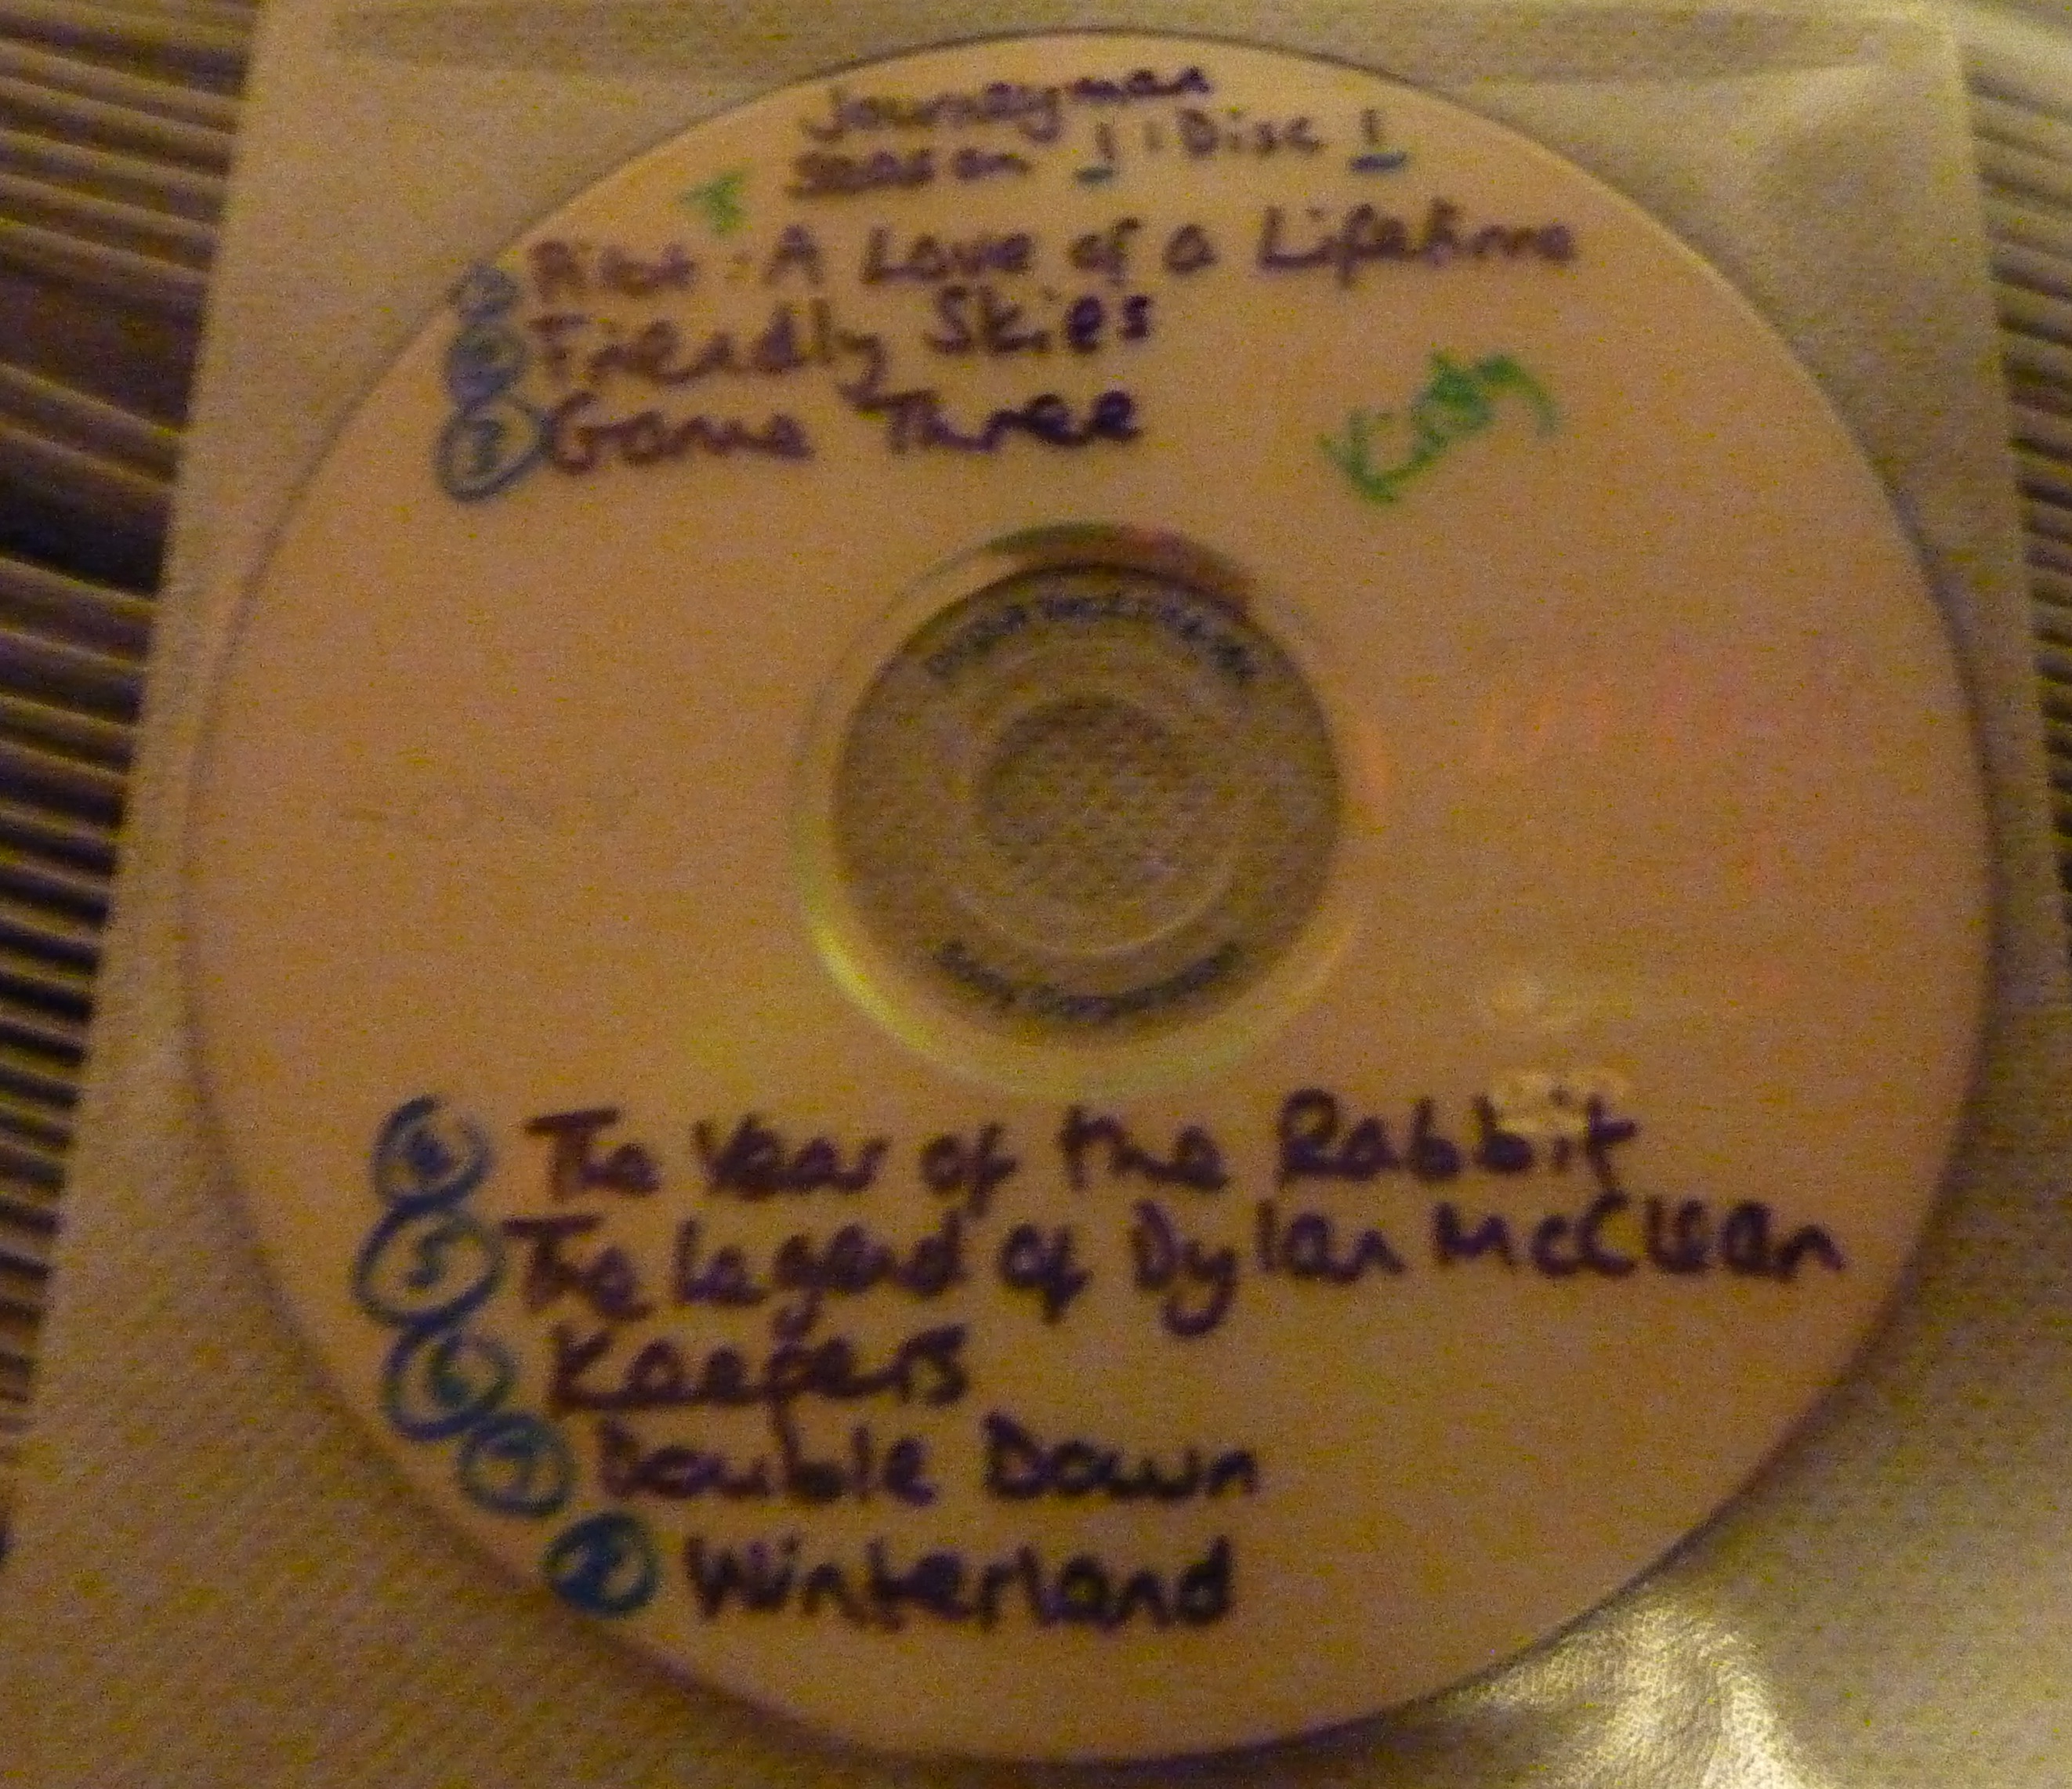 Journeyman
Season 1 : Disc 1
① Pilot - A Love of a Lifetime
② Friendly Skies
③ Game Three
④ The Year of the Rabbit
⑤ The Legend of Dylan McCleen
⑥ Keepers
⑦ Double Down
⑧ Winterland